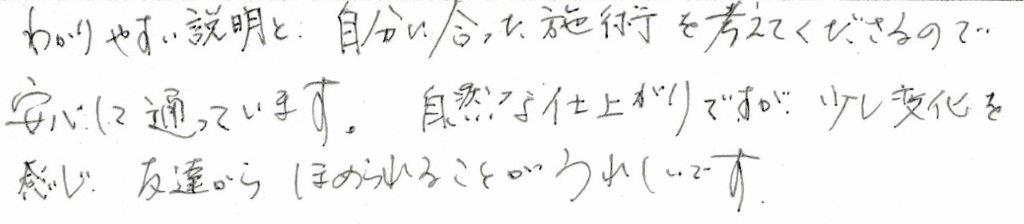 わかりやすい説明と、自分に合った施術を考えてくださるので
安心して通っています。 自然な仕上がりですが、少し変化を
感じ、友達からほめられることがうれしいです。